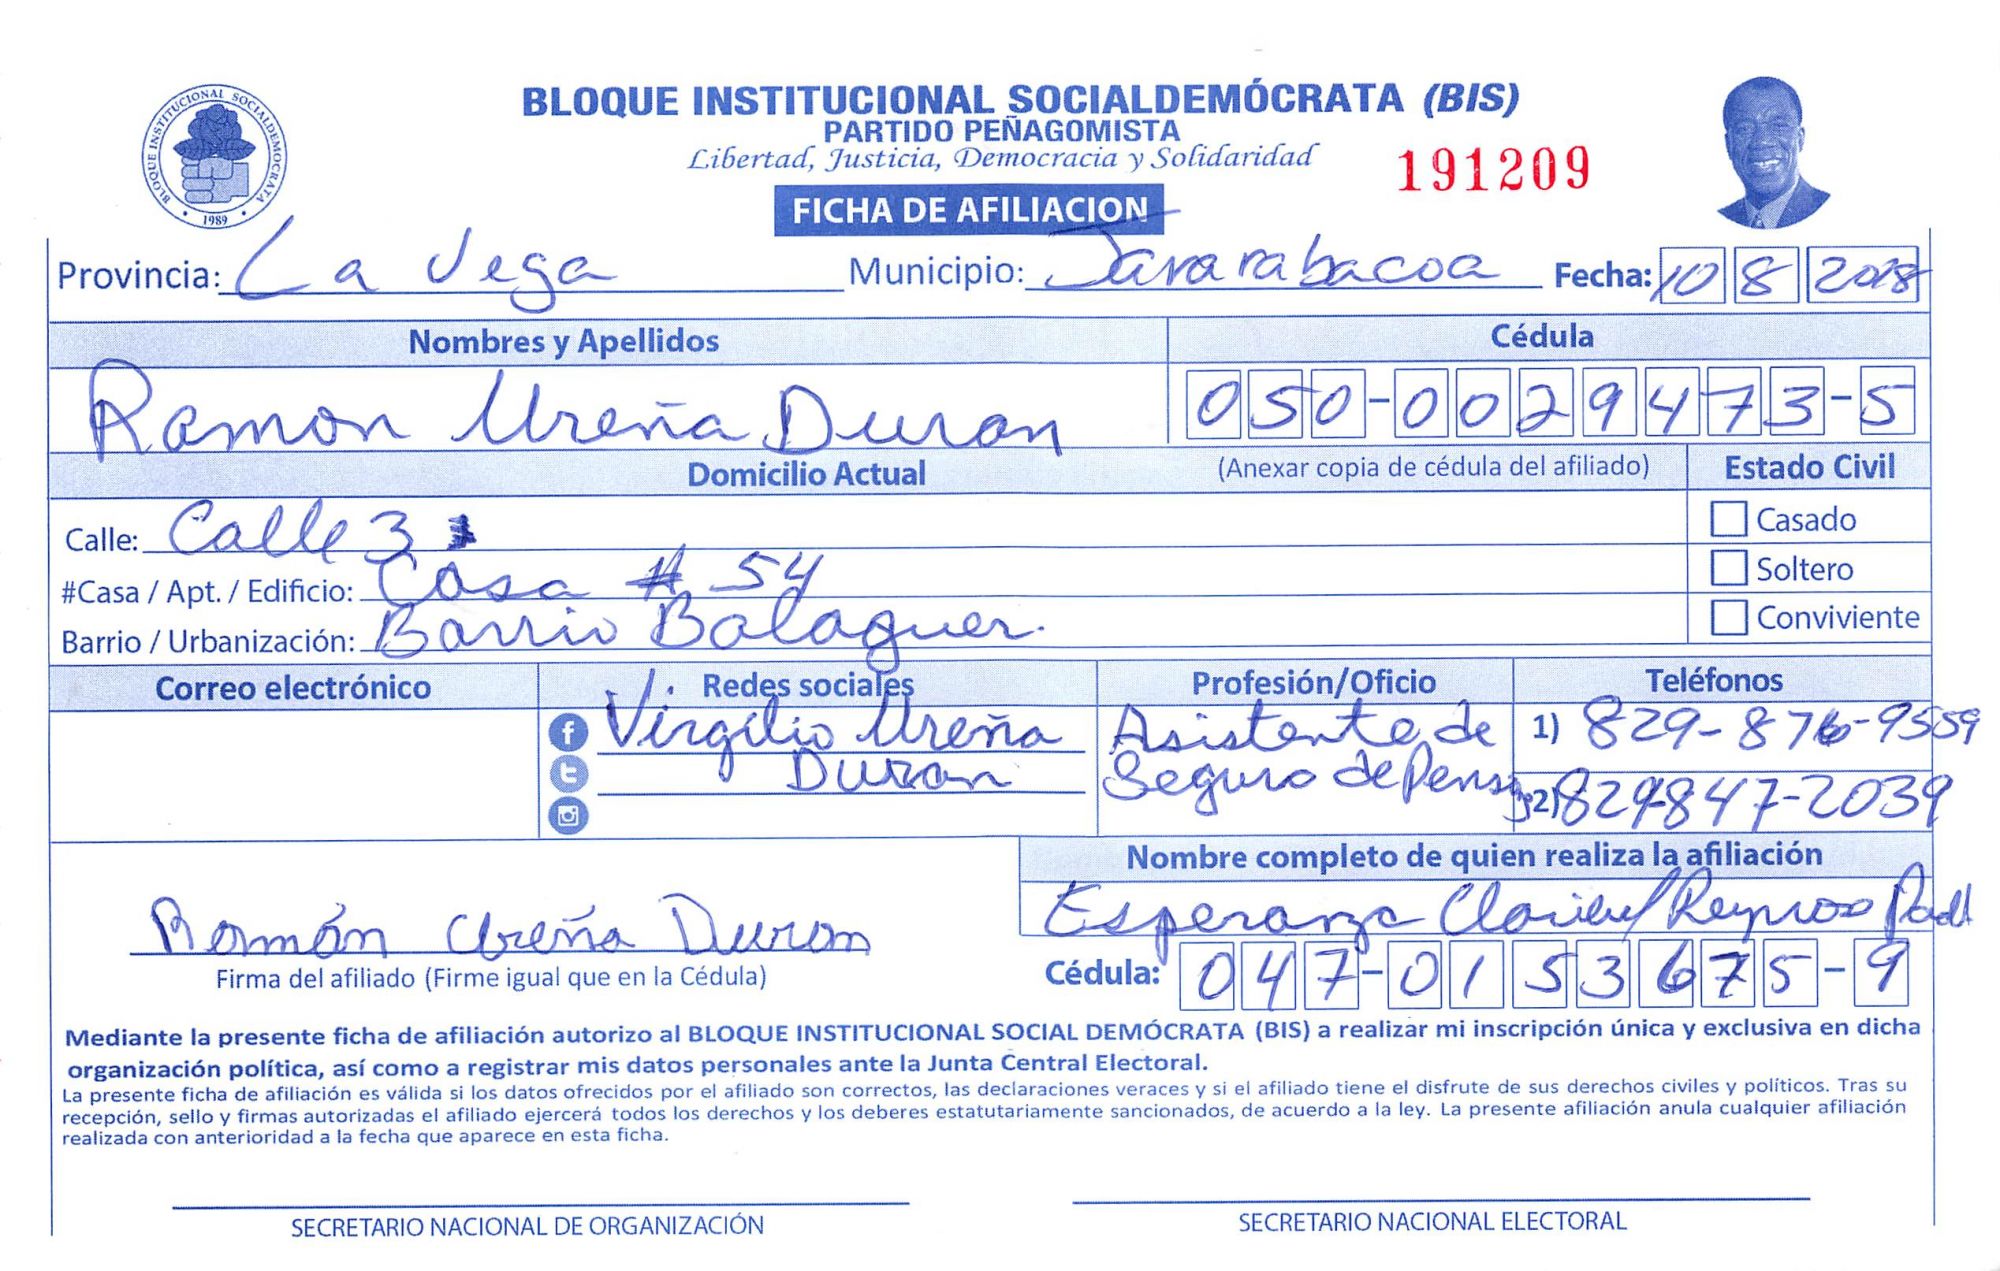 BLOQUE INSTITUCIONAL SOCIALDEMOCRATA
1989
BLOQUE INSTITUCIONAL SOCIALDEMÓCRATA (BIS)
PARTIDO PEÑAGOMISTA
Libertad, Justicia, Democracia y Solidaridad
191209
FICHA DE AFILIACION
Provincia: La Vega Municipio: Jararabacoa Fecha: 10 8 2018
Nombres y Apellidos Cédula
Ramon Ureña Duran 050-0029473-5
Domicilio Actual (Anexar copia de cédula del afiliado) Estado Civil
Calle: Calle 3 Casado
#Casa / Apt. / Edificio: Casa # 54 Soltero
Barrio / Urbanización: Barrio Balaguer. Conviviente
Correo electrónico Redes sociales Profesión/Oficio Teléfonos
Virgilio Ureña Asistente de 1) 829-876-9559
Duran Seguro de 2) 829-847-2039
Nombre completo de quien realiza la afiliación
Ramón Ureña Duran Esperanza Reynoso
Firma del afiliado (Firme igual que en la Cédula) Cédula: 047-0153675-9
Mediante la presente ficha de afiliación autorizo al BLOQUE INSTITUCIONAL SOCIAL DEMÓCRATA (BIS) a realizar mi inscripción única y exclusiva en dicha
organización política, así como a registrar mis datos personales ante la Junta Central Electoral.
La presente ficha de afiliación es válida si los datos ofrecidos por el afiliado son correctos, las declaraciones veraces y si el afiliado tiene el disfrute de sus derechos civiles y políticos. Tras su
recepción, sello y firmas autorizadas el afiliado ejercerá todos los derechos y los deberes estatutariamente sancionados, de acuerdo a la ley. La presente afiliación anula cualquier afiliación
realizada con anterioridad a la fecha que aparece en esta ficha.
SECRETARIO NACIONAL DE ORGANIZACIÓN SECRETARIO NACIONAL ELECTORAL